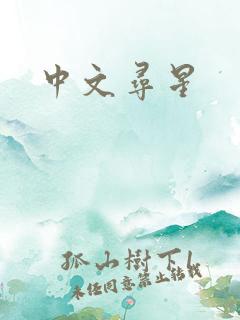 中文尋星
孤山樹下l
未经同意禁止转载